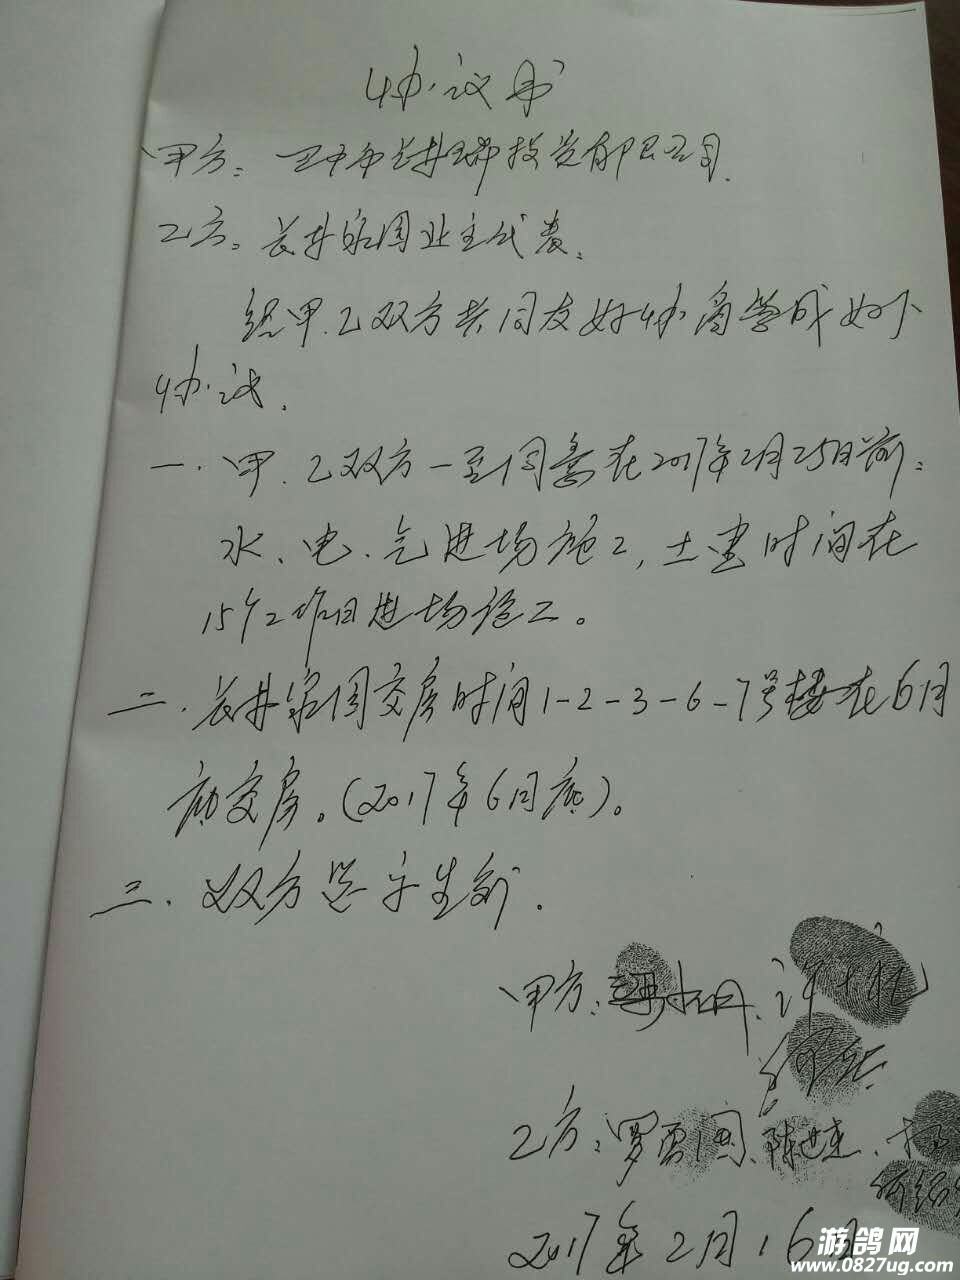 协议书
甲方：巴中市长井瑞投资有限公司.
乙方：长井家园业主代表.
经甲.乙双方共同友好协商达成如下
协议.
一.甲.乙双方一至同意在2017年2月25日前：
水、电、气进场施工,土建时间在
15个工作日进场施工。
二.长井家园交房时间1-2-3-6-7号楼在6月
底交房。(2017年6月底)。
三.双方签字生效.
甲方：
乙方：罗 陈世
2017年2月16日
游鸽网
www.0827ug.com